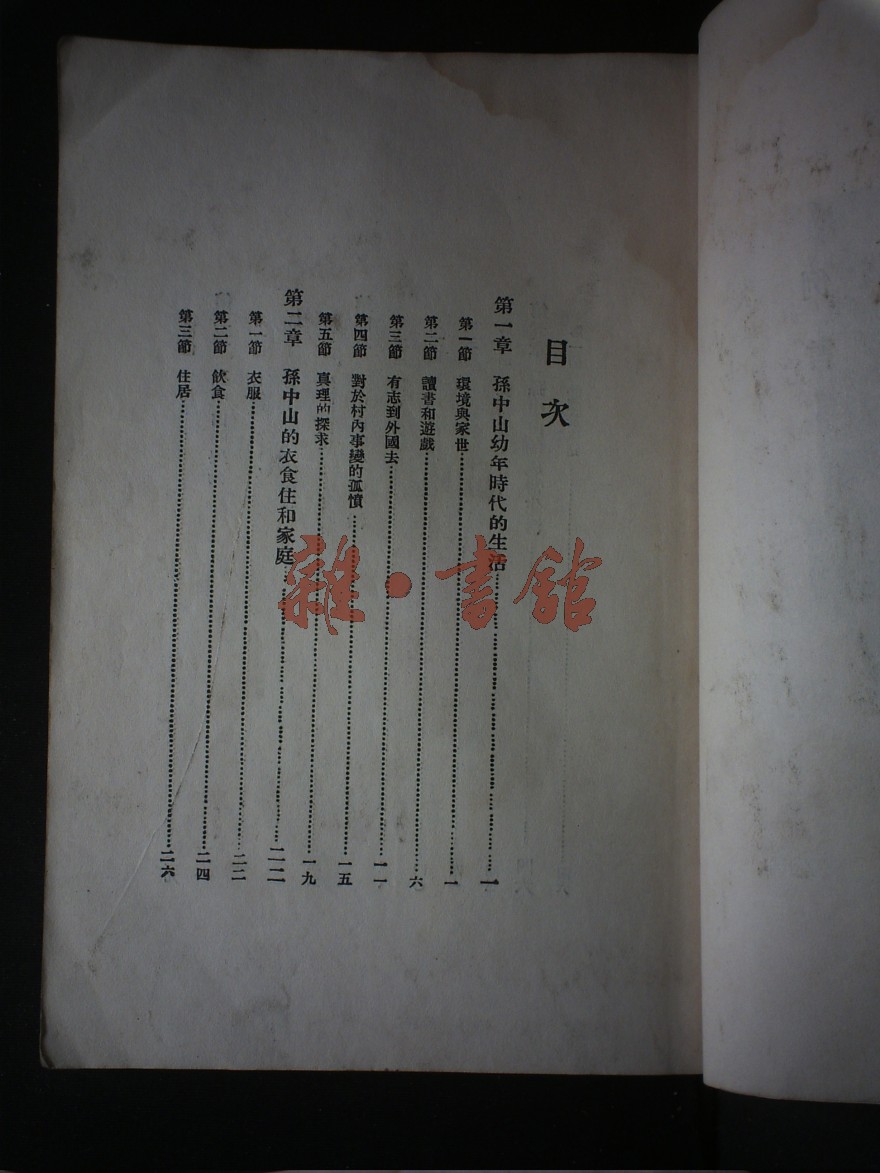 目次
第一章 孫中山幼年時代的生活……一
第一節 環境與家世……一
第二節 讀書和遊戲……六
第三節 有志到外國去……一一
第四節 對於村內事變的孤憤……一五
第五節 真理的探求……一九
第二章 孫中山的衣食住和家庭……二二
第一節 衣服……二二
第二節 飲食……二四
第三節 住居……二六
雜·書館